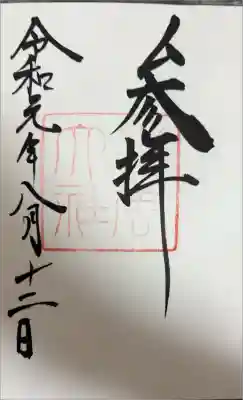 参拝
令和元年八月十二日
大社